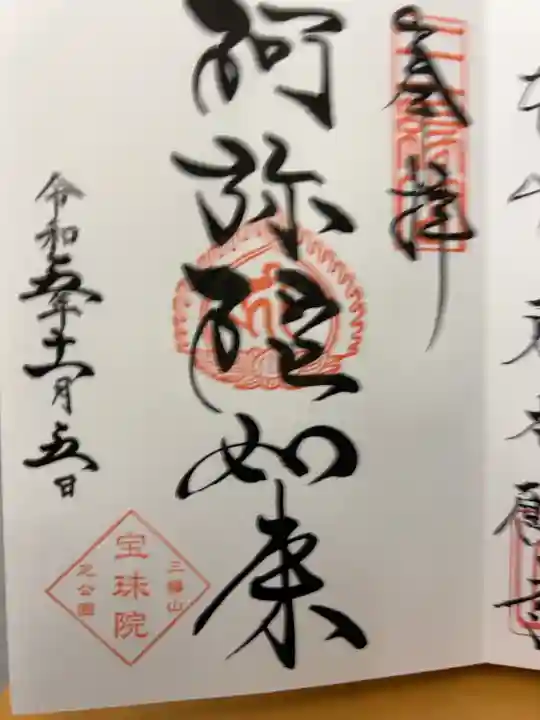 奉拝
阿弥陀如来
令和五年十一月五日
三縁山
宝珠院
芝公園